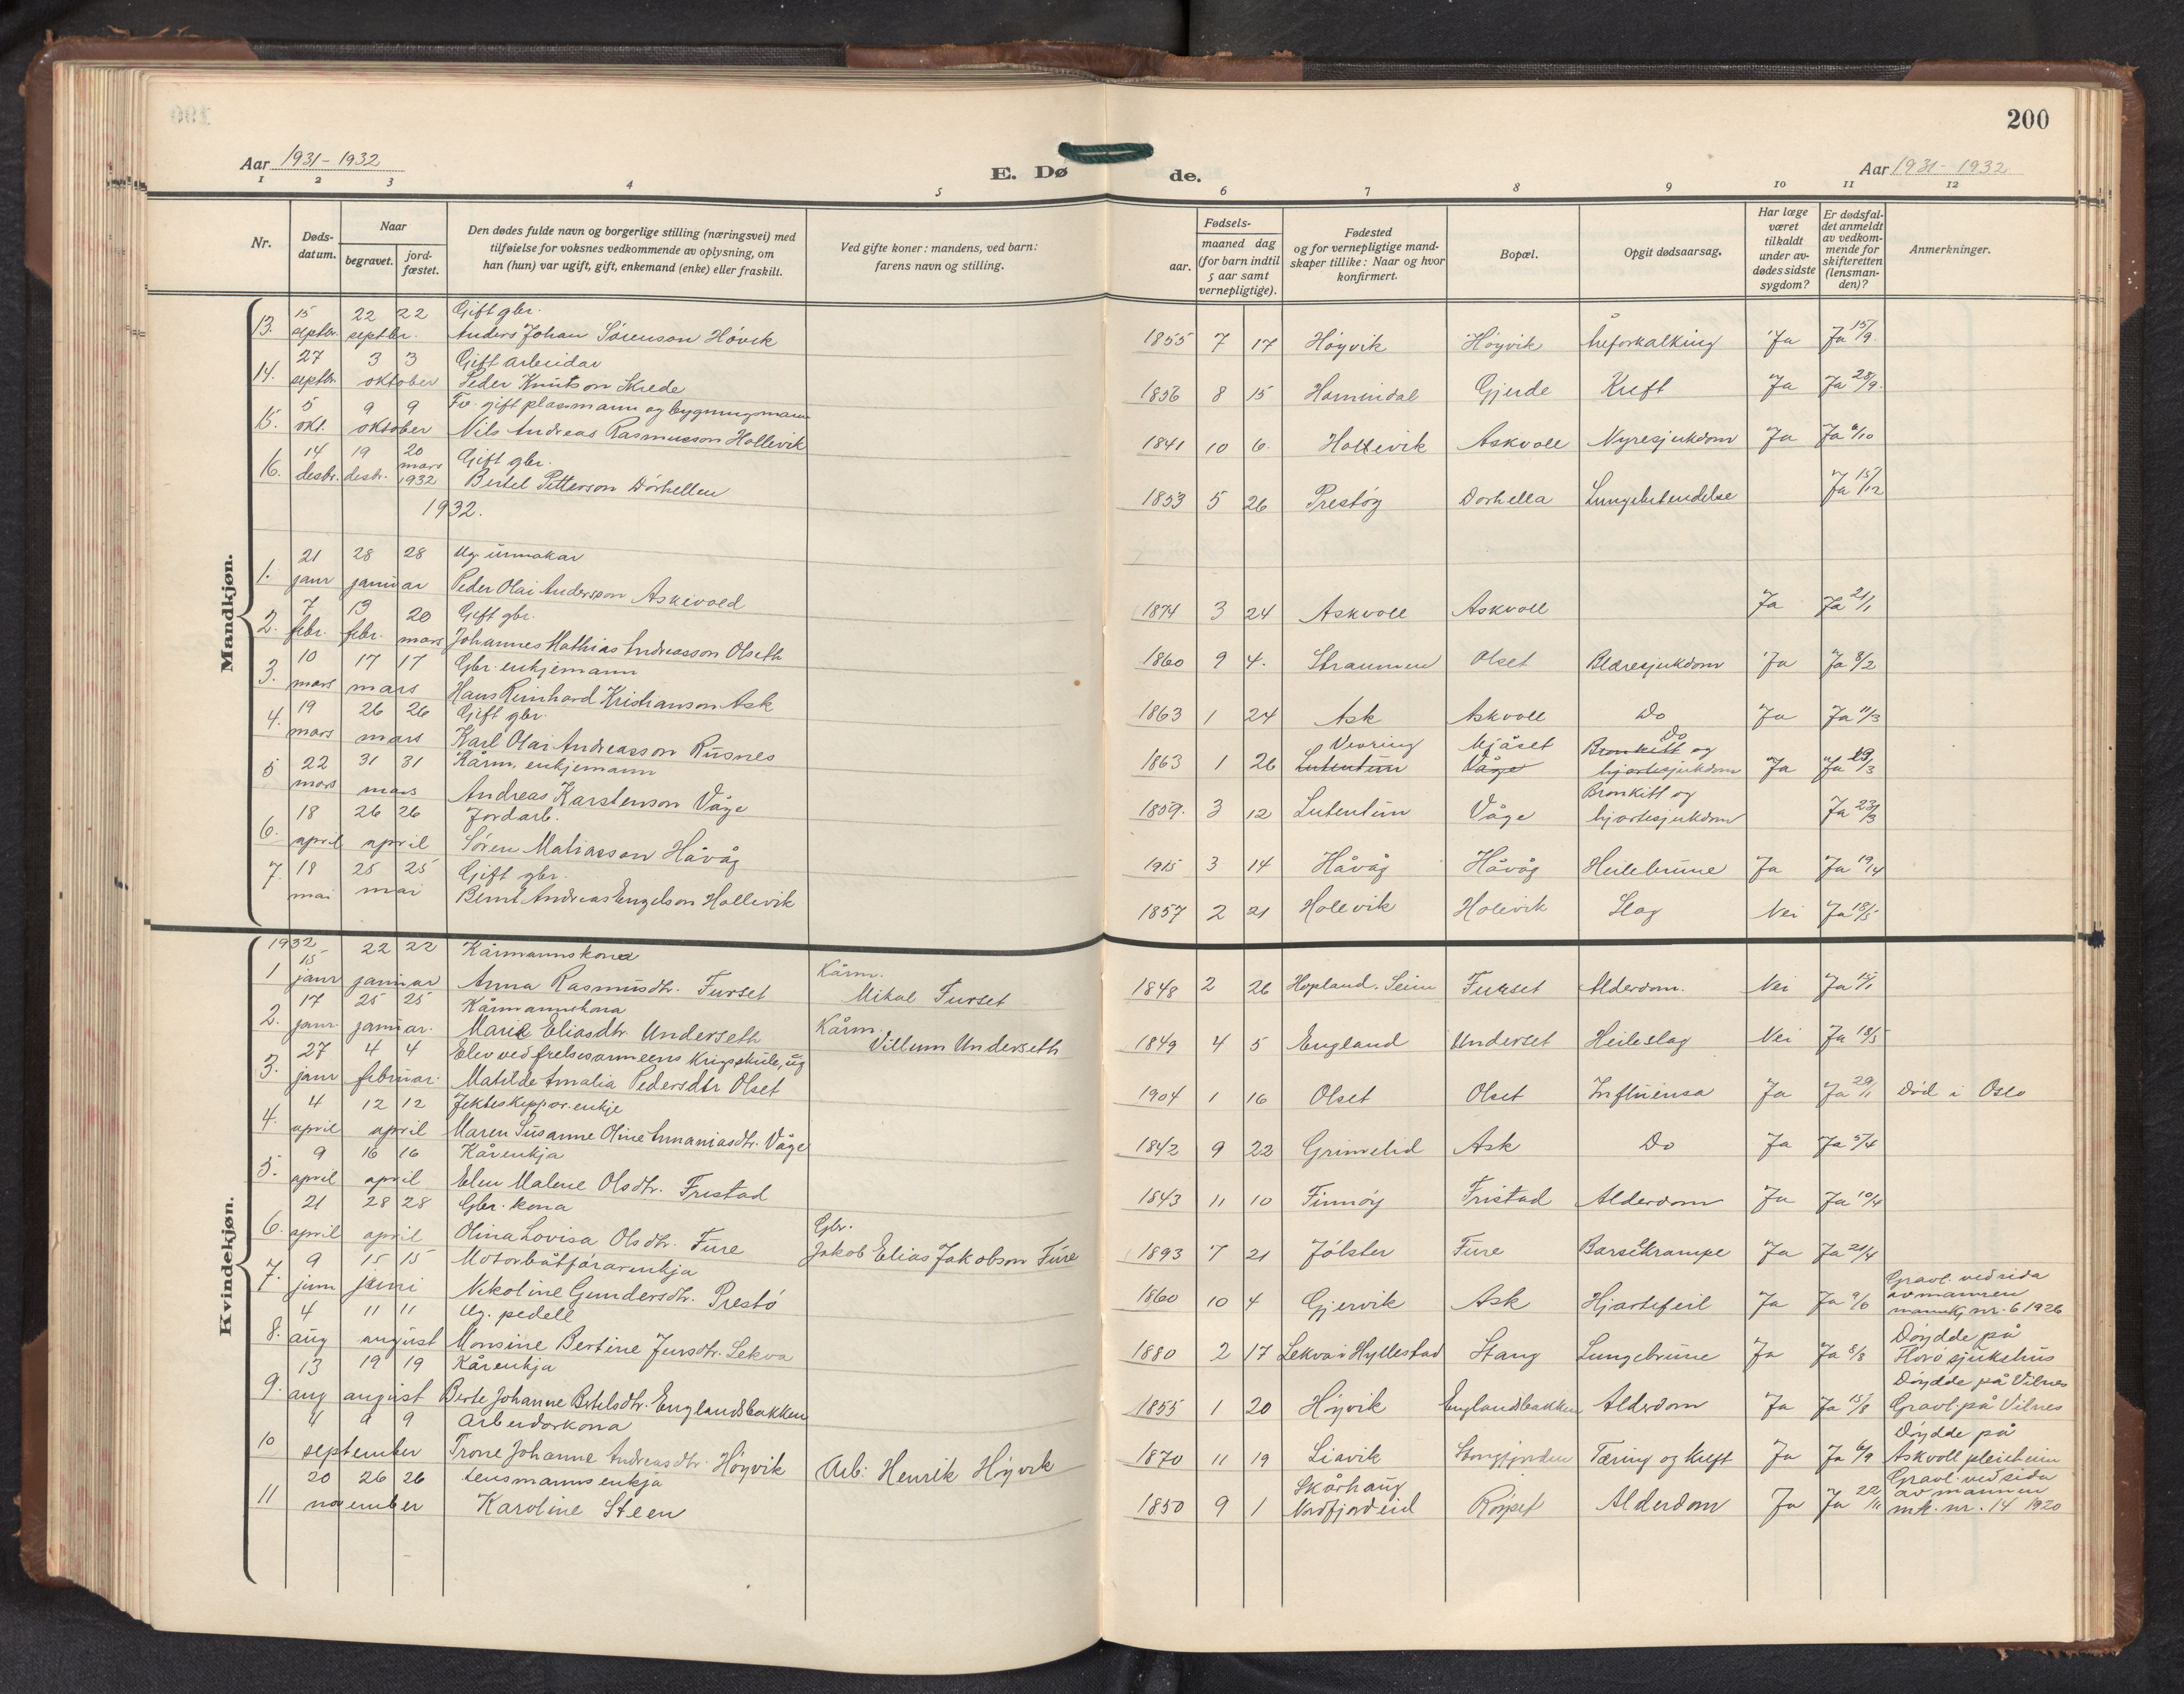 200
Aar 1931-1932
E. Dø de.
Aar 1931-1932
1 2 3 4 5 6 7 8 9 10 11 12
Nr.
Døds-datum.
Naar
begravet.
jord-fæstet.
Den dødes fulde navn og borgerlige stilling (næringsvei) med
tilføielse for voksnes vedkommende av oplysning, om
han (hun) var ugift, gift, enkemand (enke) eller fraskilt.
Ved gifte koner: mandens, ved barn:
farens navn og stilling.
Fødsels-
aar.
maaned dag
(for barn indtil
5 aar samt
vernepligtige).
Fødested
og for vernepligtige mand-
skaper tillike: Naar og hvor
konfirmert.
Bopæl.
Opgit dødsaarsag.
Har læge
været
tilkaldt
under av-
dødes sidste
sygdom?
Er dødsfal-
det anmeldt
av vedkom-
mende for
skifteretten
(lensman-
den)?
Anmerkninger.
Mandkjøn.
15 22 22 Gift gbr.
13. septbr. septbr. Anders Johan Sørenson Høvik 1855 7 17 Høyvik Høyvik Åreforkalking Ja Ja 15/9.
27 3 3 Gift arbeidar
14. septbr. oktober Peder Knutson Skrede 1856 8 15 Hornindal Gjerde Kreft Ja Ja 28/9.
5 9 9 Fv. gift plassmann og bygningsmann
15. okt. oktober Nils Andreas Rasmusson Hollevik 1841 10 6. Hollevik Askvoll Nyresjukdom Ja Ja 6/10
14 19 20 Gift gbr.
16. desbr. desbr. mars 1932 Bertel Petterson Dørhellen 1853 5 26 Prestøy Dørhella Lungebetendelse Ja 15/12
1932.
21 28 28 Ug. urmakar
1. janr januar Peder Olai Anderson Askevold 1874 3 24 Askvoll Askvoll Ja Ja 21/1
7 13 20 Gift gbr.
2. febr. febr. mars Johannes Mathias Andreasson Olseth 1860 9 4. Straumen Olset Blæresjukdom Ja Ja 8/2
10 17 17 Gbr. enkjemann
3. mars mars Hans Reinhard Kristianson Ask 1863 1 24 Ask Askvoll Do Ja Ja 11/3
19 26 26 Gift gbr. Vevring Mjåset Do
4. mars mars Karl Olai Andreasson Rusnes 1863 1 26 Lutentun Våge Bronkitt og hjartesjukdom Ja Ja 19/3
22 31 31 Kårm. enkjemann
5 mars mars Andreas Karstenson Våge 1859. 3 12 Lutentun Våge Bronkitt og hjartesjukdom Ja 23/3
18 26 26 Jordarb.
6. april april Søren Matiasson Håvåg 1915 3 14 Håvåg Håvåg Heilebrune Ja Ja 19/4
18 25 25 Gift gbr.
7. mai mai Bernt Andreas Engelson Hollevik 1857 2 21 Hollevik Holevik Slag Nei Ja 18/5
Kvindekjøn.
1932
15 22 22 Kårmannskona Kårm.
1 janr januar Anna Rasmusdtr. Furset Mikal Furset 1848 2 26 Hopland. Seim Furset Alderdom. Nei Ja 15/1
17 25 25 Kårmannskona Kårm.
2. janr. januar. Marie Eliasdtr Underseth Villum Underseth 1849 4 5 England Underset Heileslag Nei Ja 18/5
27 4 4 Elev ved frelsesarmeens krigsskule, ug
3. janr februar. Matilde Amalia Pedersdtr Olset 1904 1 16 Olset Olset Influensa Ja Ja 29/1 Død i Oslo
4 12 12 Jekteskippar.enkje
4. april april Maren Susanne Oline Ananiasdtr. Våge 1842 9 22 Grimelid Ask Do Ja Ja 5/4
9 16 16 Kårenkja
5. april april Elen Malene Olsdtr. Fristad 1843 11 10 Finnøy Fristad Alderdom Ja Ja 10/4
21 28 28 Gbr. kona Gbr.
6. april april Olina Lovisa Olsdtr. Fure Jakob Elias Jakobson Fure 1893 7 21 Jølster Fure Barselkrampe Ja Ja 21/4
9 15 15 Motorbåtførarenkja
7. juni juni Nikoline Gundersdtr. Prestø 1860 10 4 Gjervik Ask Hjartefeil Ja Ja 9/6 Gravl. ved sida av mannen mansk. nr. 6 1926
4 11 11 Ug. pedell
8. aug august Monsine Bertine Jensdtr. Lekva 1880 2 17 Lekva i Hyllestad Stang Lungebrune Ja Ja 5/8 Døydde på Florø sjukehus
13 19 19 Kårenkja
9. aug august Berte Johanne Bertelsdtr. Englandsbakken 1855 1 20 Høyvik Englandsbakken Alderdom Ja Ja 15/8 Døydde på Vilnes Gravl. på Vilnes
4 9 9 Arbeidarkona
10 september Trone Johanne Andreasdtr. Høyvik Arb: Henrik Høyvik 1870 11 19 Liavik Stongfjorden Tæring og kreft Ja Ja 6/9 Døydde på Askvoll pleieheim
20 26 26 Lensmannsenkja
11 november Karoline Steen 1850 9 1 Skårhaug Nordfjordeid Røyset Alderdom Ja Ja 22/11 Gravl. ved sida av mannen mk. nr. 14 1920